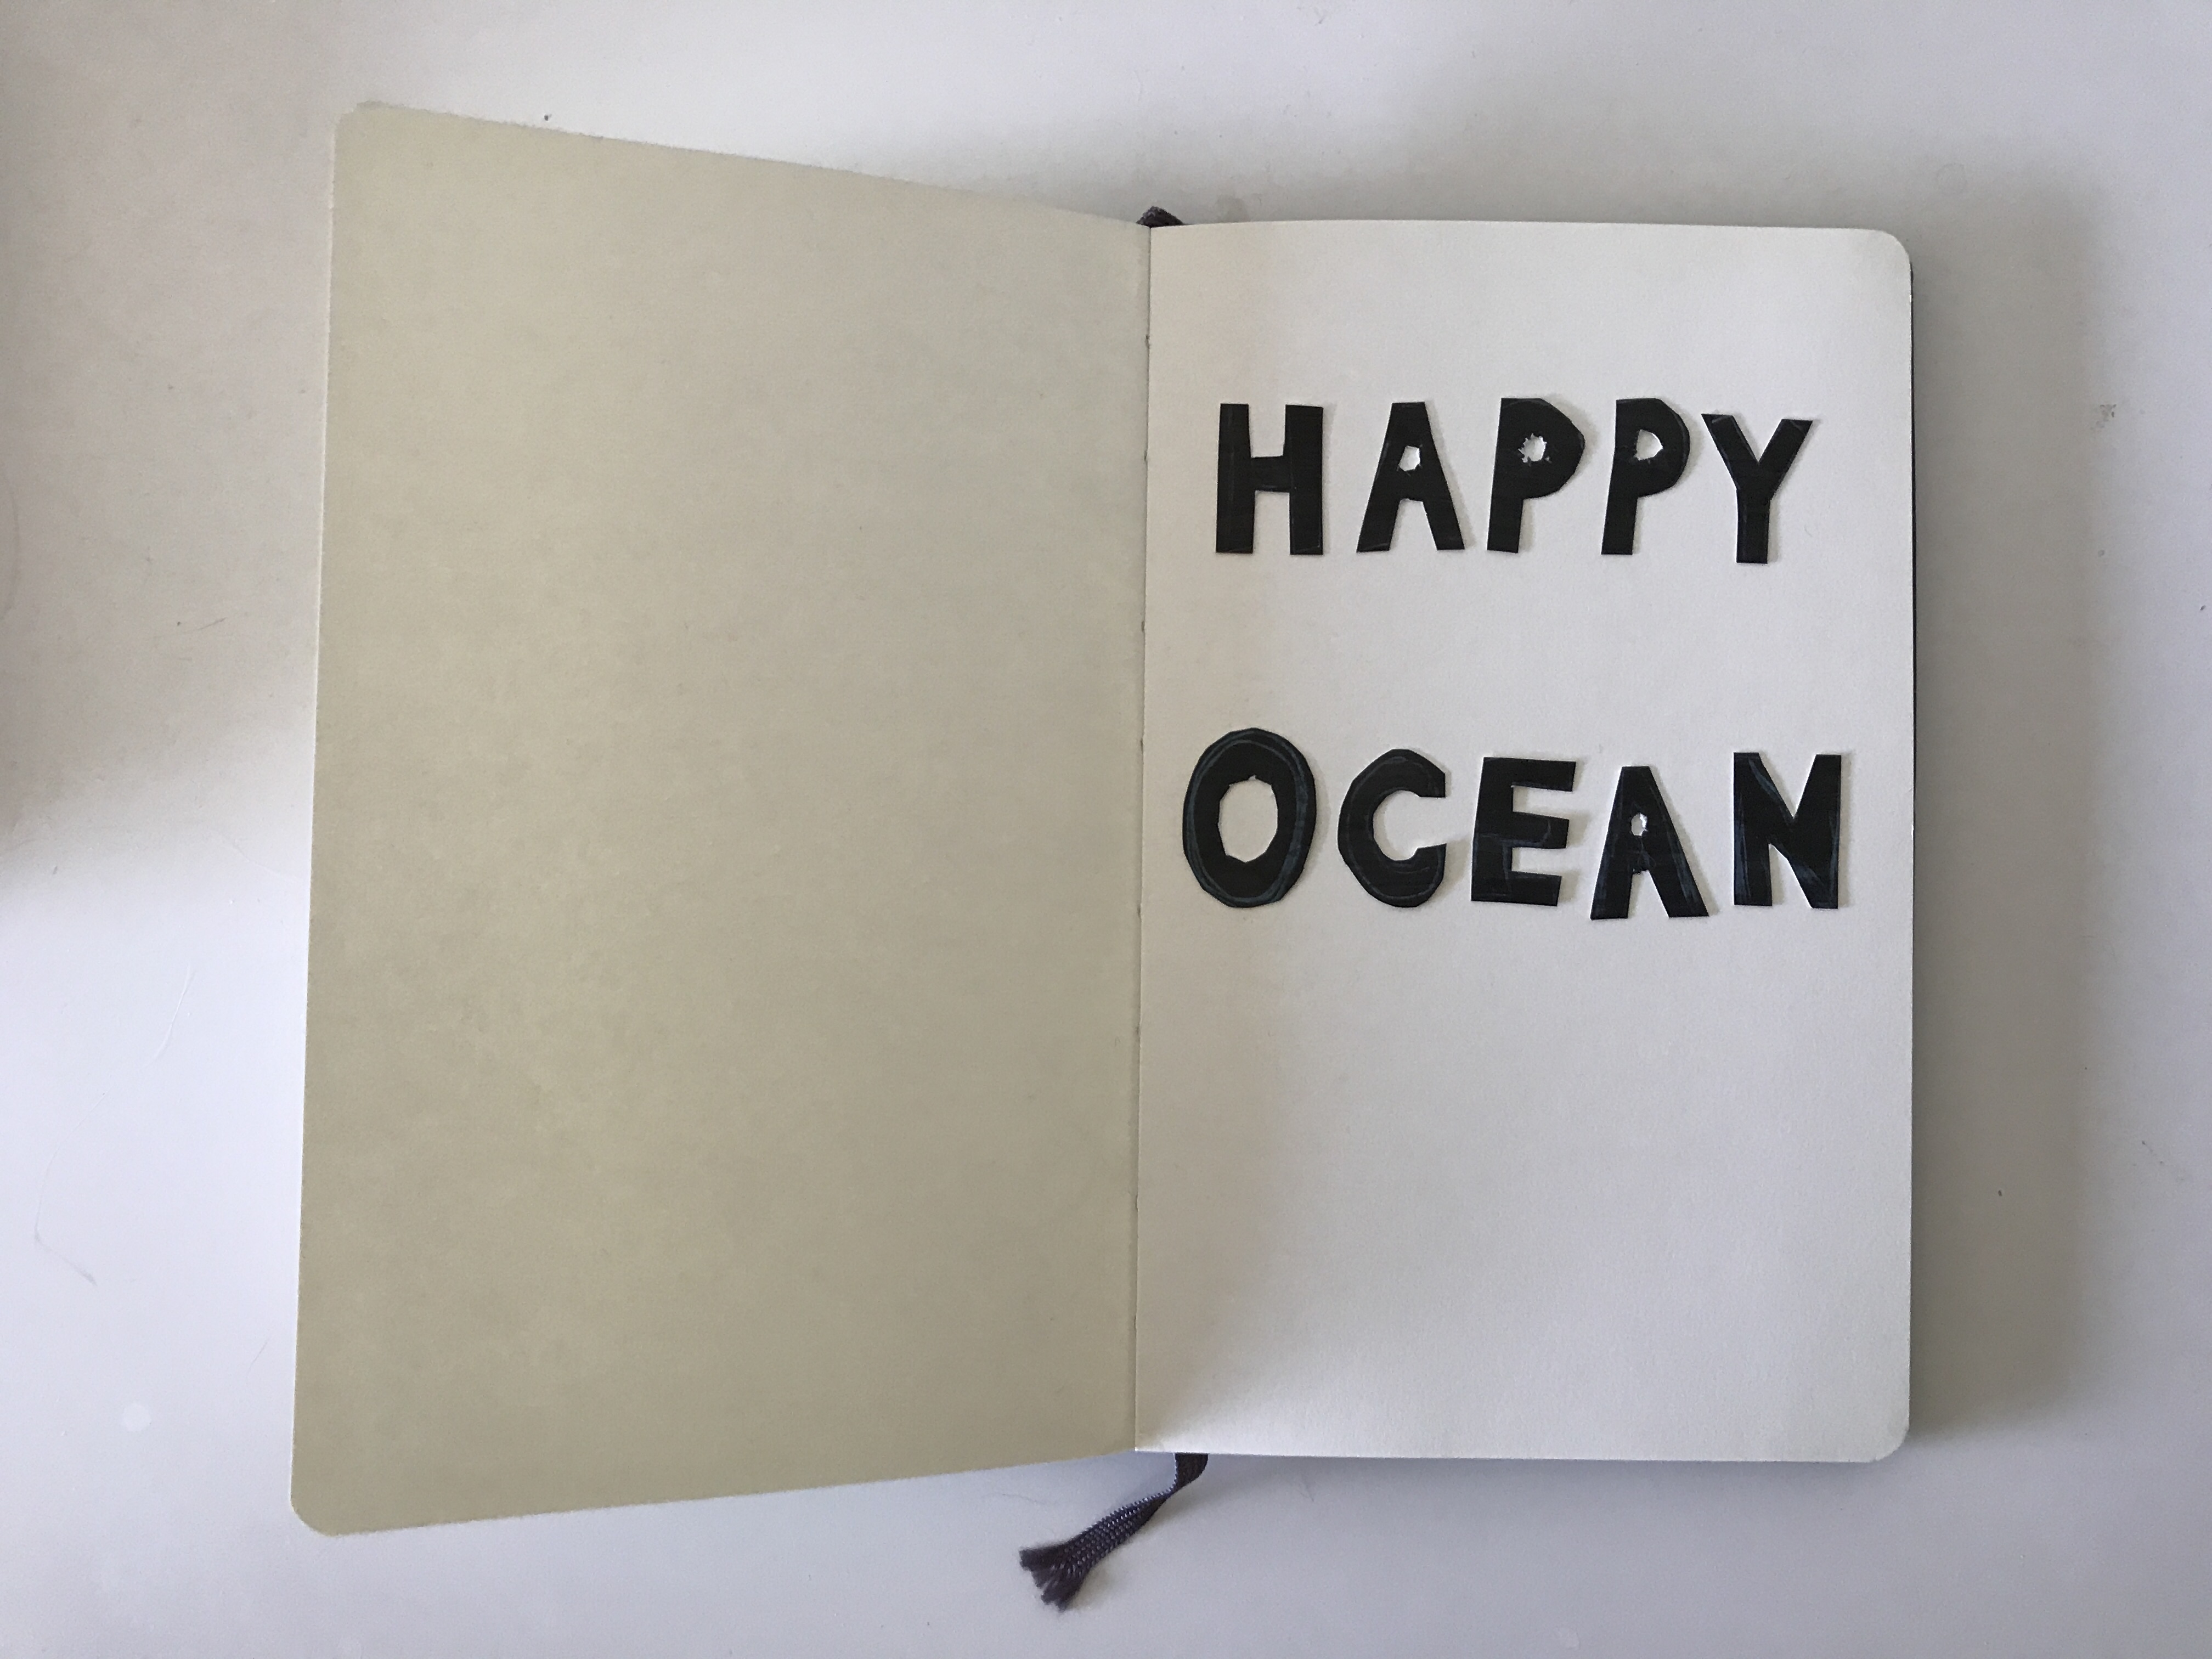 HAPPY
OCEAN